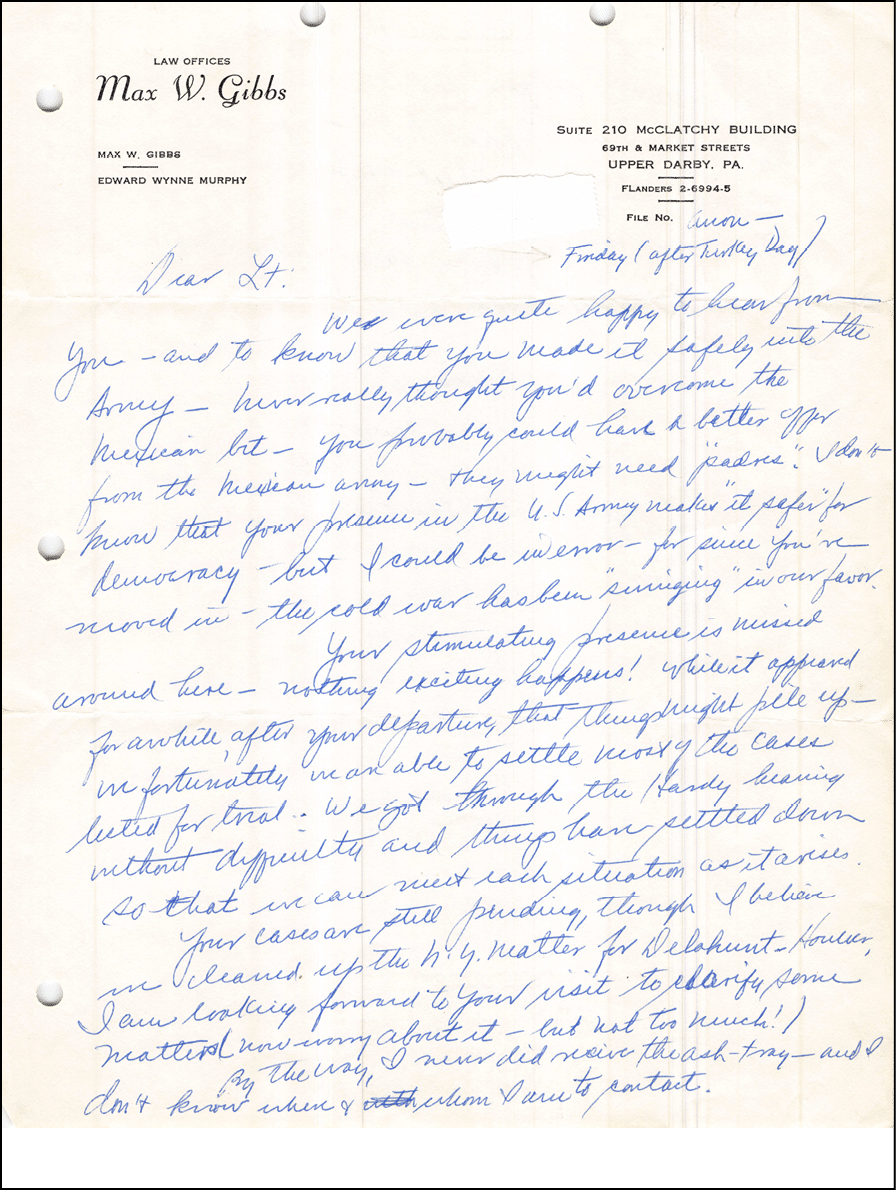 LAW OFFICES
Max W. Gibbs
MAX W. GIBBS
EDWARD WYNNE MURPHY
SUITE 210 McCLATCHY BUILDING
69TH & MARKET STREETS
UPPER DARBY, PA.
FLANDERS 2-6994-5
FILE NO. anon —
Friday (after Turkey Day)
Dear Lt:
We were quite happy to hear from
you — and to know that you made it safely into the
Army — never really thought you'd overcome the
Mexican bit — you probably could have a better offer
from the Mexican army — they might need "padres". I don't
know that your presence in the U.S. Army makes "it safer" for
democracy — but I could be in error — for since you've
moved in — the cold war has been "swinging" in our favor.
Your stimulating presence is missed
around here — nothing exciting happens! While it appeared
for awhile, after your departure, that things might pile up —
unfortunately we are able to settle most of the cases
listed for trial. We got through the Hardy hearing
without difficulty and things have settled down
so that we can meet each situation as it arises.
Your cases are still pending, though I believe
we cleaned up the N.Y. matter for Delahunt — However,
I am looking forward to your visit to clarify some
matters (now worry about it — but not too much!)
By the way, I never did receive the ash-tray — and I
don't know when & whom I am to contact.